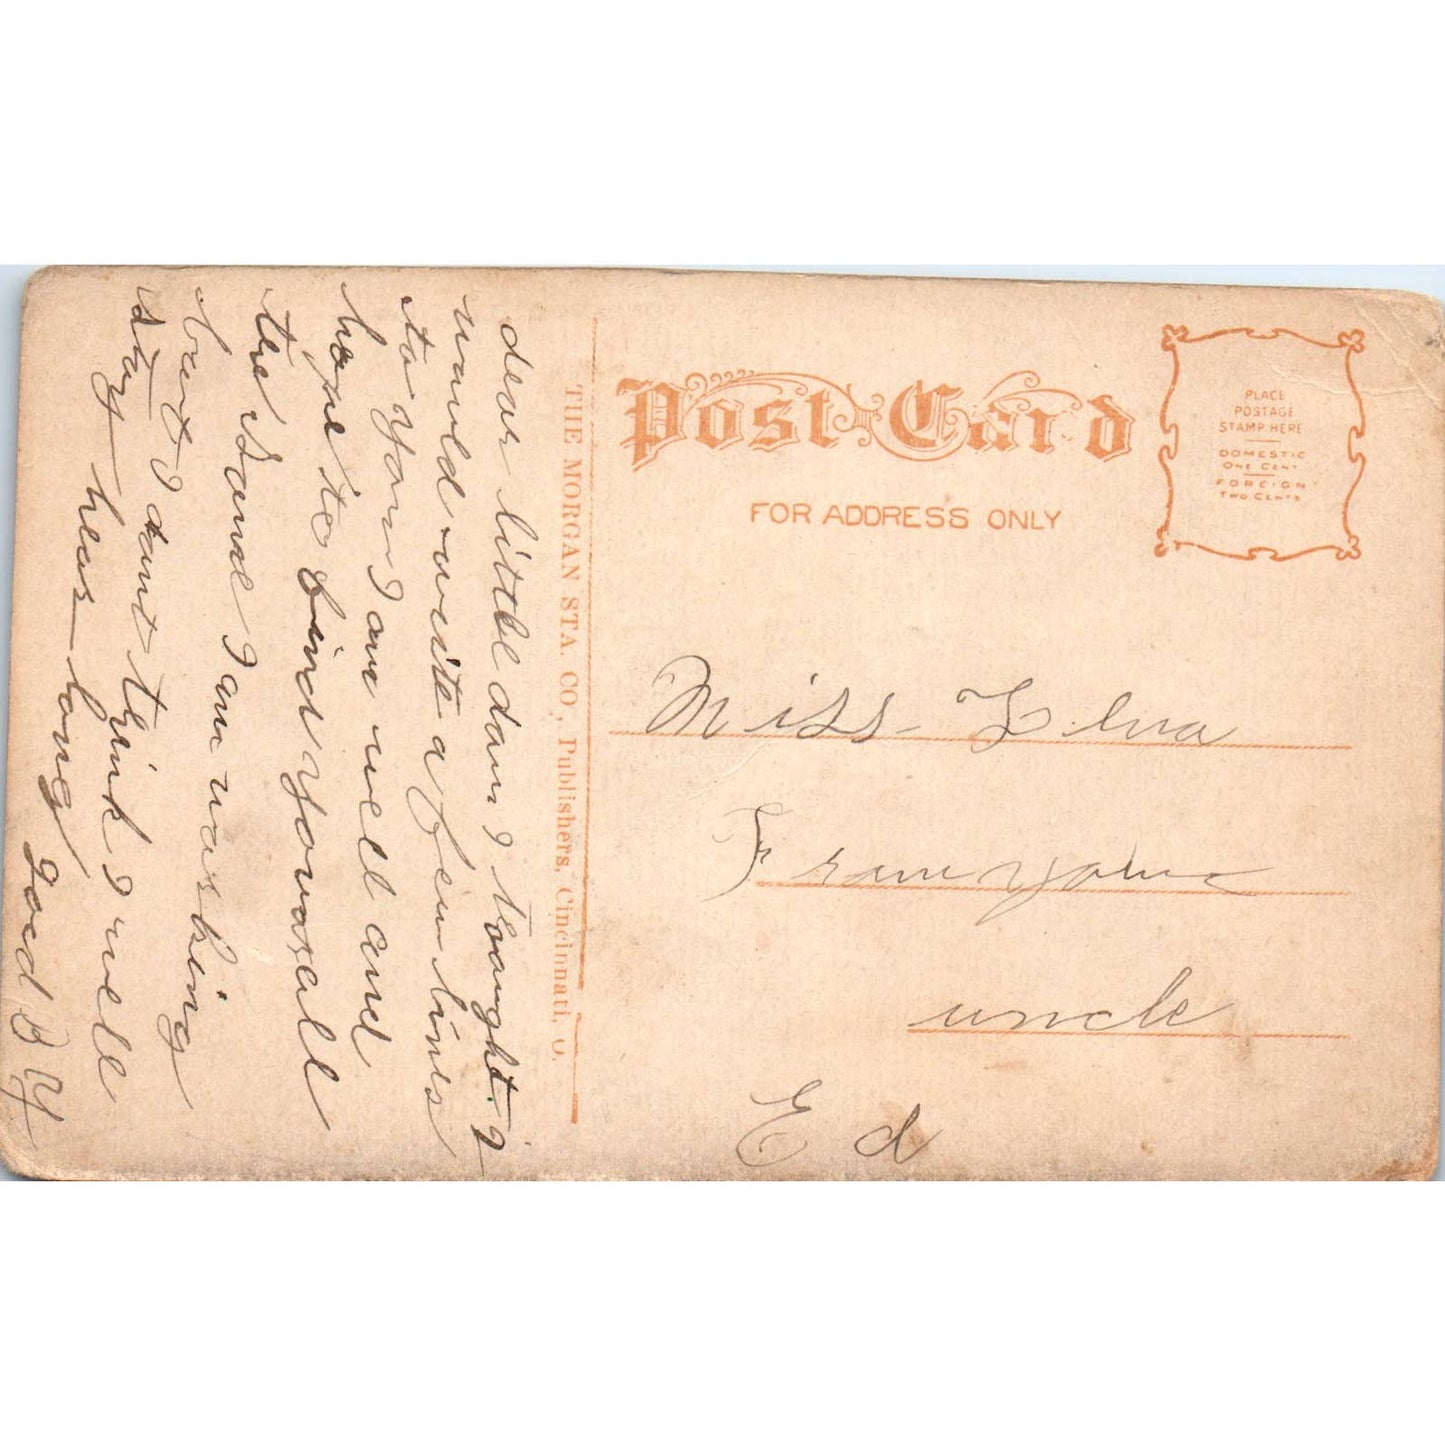 dear little dan I tought I
would write a few lines
to you I am well and
hope to find you all
the same I am working
but I dont think I well
stay hear long
good B y
THE MORGAN STA. CO., Publishers, Cincinnati, O.
Post Card
FOR ADDRESS ONLY
PLACE
POSTAGE
STAMP HERE
DOMESTIC
ONE CENT
FOREIGN
TWO CENTS
Miss Zelva
From your
uncle
Ed